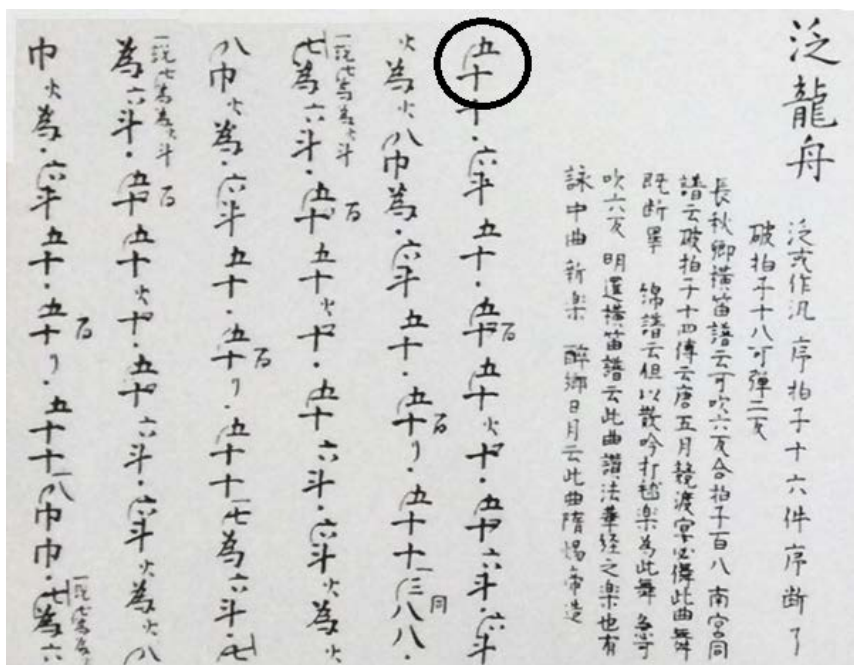 泛龍舟
泛或作汎 序拍子十六件序断了
破拍子十八可弾二反
長秋卿横笛譜云可吹六反合拍子百八 南宮同
譜云破拍子十四傳云唐五月競渡宴必儛此曲舞
既断畢 綿譜云但以散吟打毬楽為此舞 急可
吹六反 明暹横笛譜云此曲讃法華経之楽也有
詠中曲新楽 酔郷日月云此曲隋煬帝造
五十十・六斗五十・五十百五十火十・五十六斗・六斗
火為火八巾為・六斗五十・五十百リ・五十十一三八八同・
一説七為為火斗
七為六斗・五十百五十火十・五十六斗・六斗火為火
八巾火為・六斗五十・五十百リ・五十十一七為六斗・七
一説七為為火斗
為六斗・五十百五十火十・五十六斗・六斗火為火八
巾火為・六斗五十・五十百リ・五十十一八巾巾・七為六
一説七為為